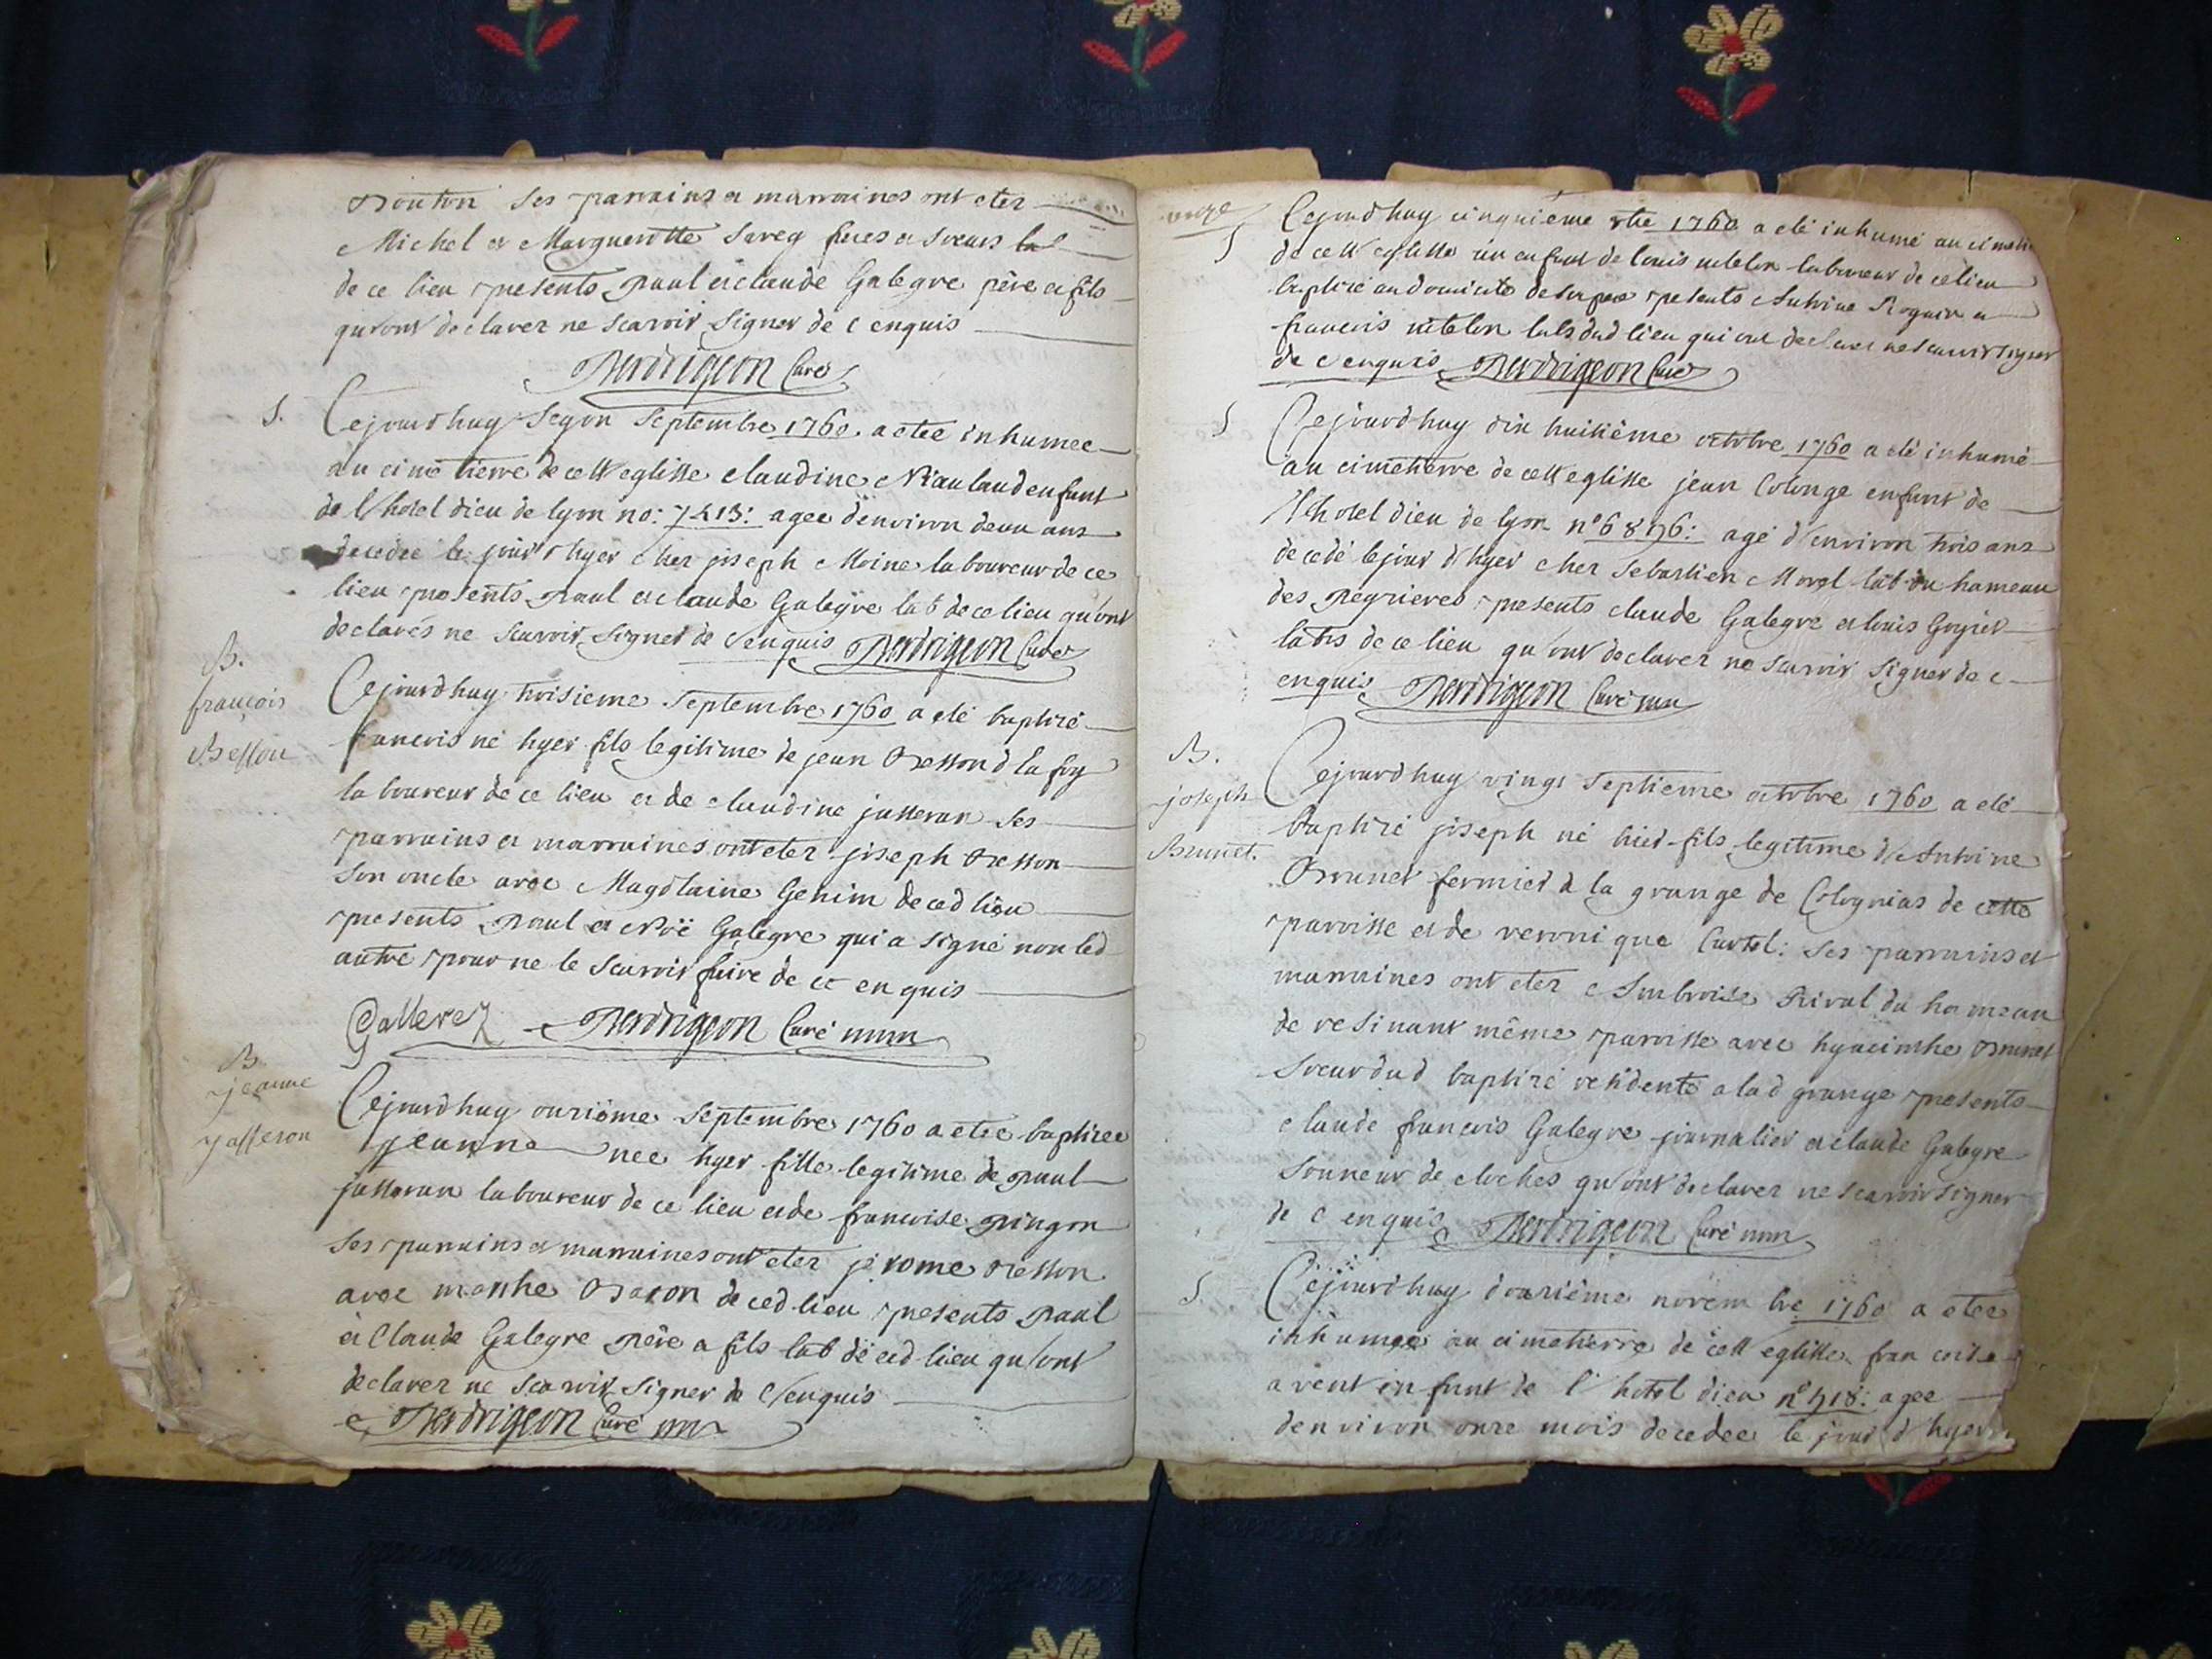 Bouton ses parrains et marraines ont etez
Michel et Margueritte freres et soeurs
de ce lieu presents paul et claude Galegre père et fils
qu'ont declarez ne scavoir signer de c enquis
Perdrigeon Curé
S.
Cejourdhuy segon septembre 1760 a etée inhumee
au cimetierre de cette eglisse claudine enfant
de l'hotel dieu de lyon no: 7413: agee denviron deux ans
decedee le jour d'hyer chez joseph Moine laboureur de ce
lieu presents paul et claude Galegre lab de ce lieu qu'ont
declarés ne scavoir signer de c'enquis Perdrigeon Curé
B.
françois
Besson
Cejourdhuy troisieme septembre 1760 a eté baptizé
francois né hyer fils legitime de jean Besson d la foy
laboureur de ce lieu et de claudine jasseran ses
parrains et marraines ont etez joseph Besson
son oncle avec Magdlaine Genim de ced lieu
presents paul et Noë Galegre qui a signé non led
autre pour ne le scavoir faire de ce enquis
Perdrigeon Curé mnn
B.
jeanne
jasseron
Cejourdhuy onzième septembre 1760 a etée baptizee
jeanne nee hyer fille legitime de paul
jasseran laboureur de ce lieu et de francoise pingon
ses parrains et marraines ont etez jerome Besson
avec marthe de ced lieu presents paul
et Claude Galegre père et fils lab de ced lieu qu'ont
declarez ne scavoir signer de c'enquis
Perdrigeon Curé mnn
S
Cejourdhuy cinquième 8bre 1760 a eté inhumé au
de cette eglisse un enfant de louis laboureur de ce lieu
baptizé au domicile de son pere presents Antoine et
francois dud lieu qui ont declarez ne scavoir signer
de c enquis Perdrigeon Curé
S
Cejourdhuy dix huitième octobre 1760 a eté inhumé
au cimetierre de cette eglisse jean Colonge enfant de
l'hotel dieu de lyon n° 6896: agé d'environ trois ans
decedé le jour d'hyer chez sebastien Morel lab du hameau
des presents claude Galegre et louis
labrs de ce lieu qu'ont declarez ne scavoir signer de c
enquis Perdrigeon Curé mnn
B.
joseph
Brunet.
Cejourdhuy vingt septieme octobre 1760 a eté
baptizé joseph né hier fils legitime d'Antoine
Brunet fermier d la grange de Colognias de cette
paroisse et de veronique Curtel: ses parrains et
marraines ont etez Ambroise Rival du hameau
de resinant même paroisse avec hyacinthe Brunet
soeur dud baptizé residente a lad grange presents
claude francois Galegre journalier et claude Galegre
sonneur de cloches qu'ont declarez ne scavoir signer
de c enquis Perdrigeon Curé mnn
S
Cejourdhuy douzième novembre 1760 a etee
inhumée au cimetierre de cette eglisse francoise
avent enfant de l'hotel dieu n° 418: agee
denviron onze mois decedee le jour d'hyer